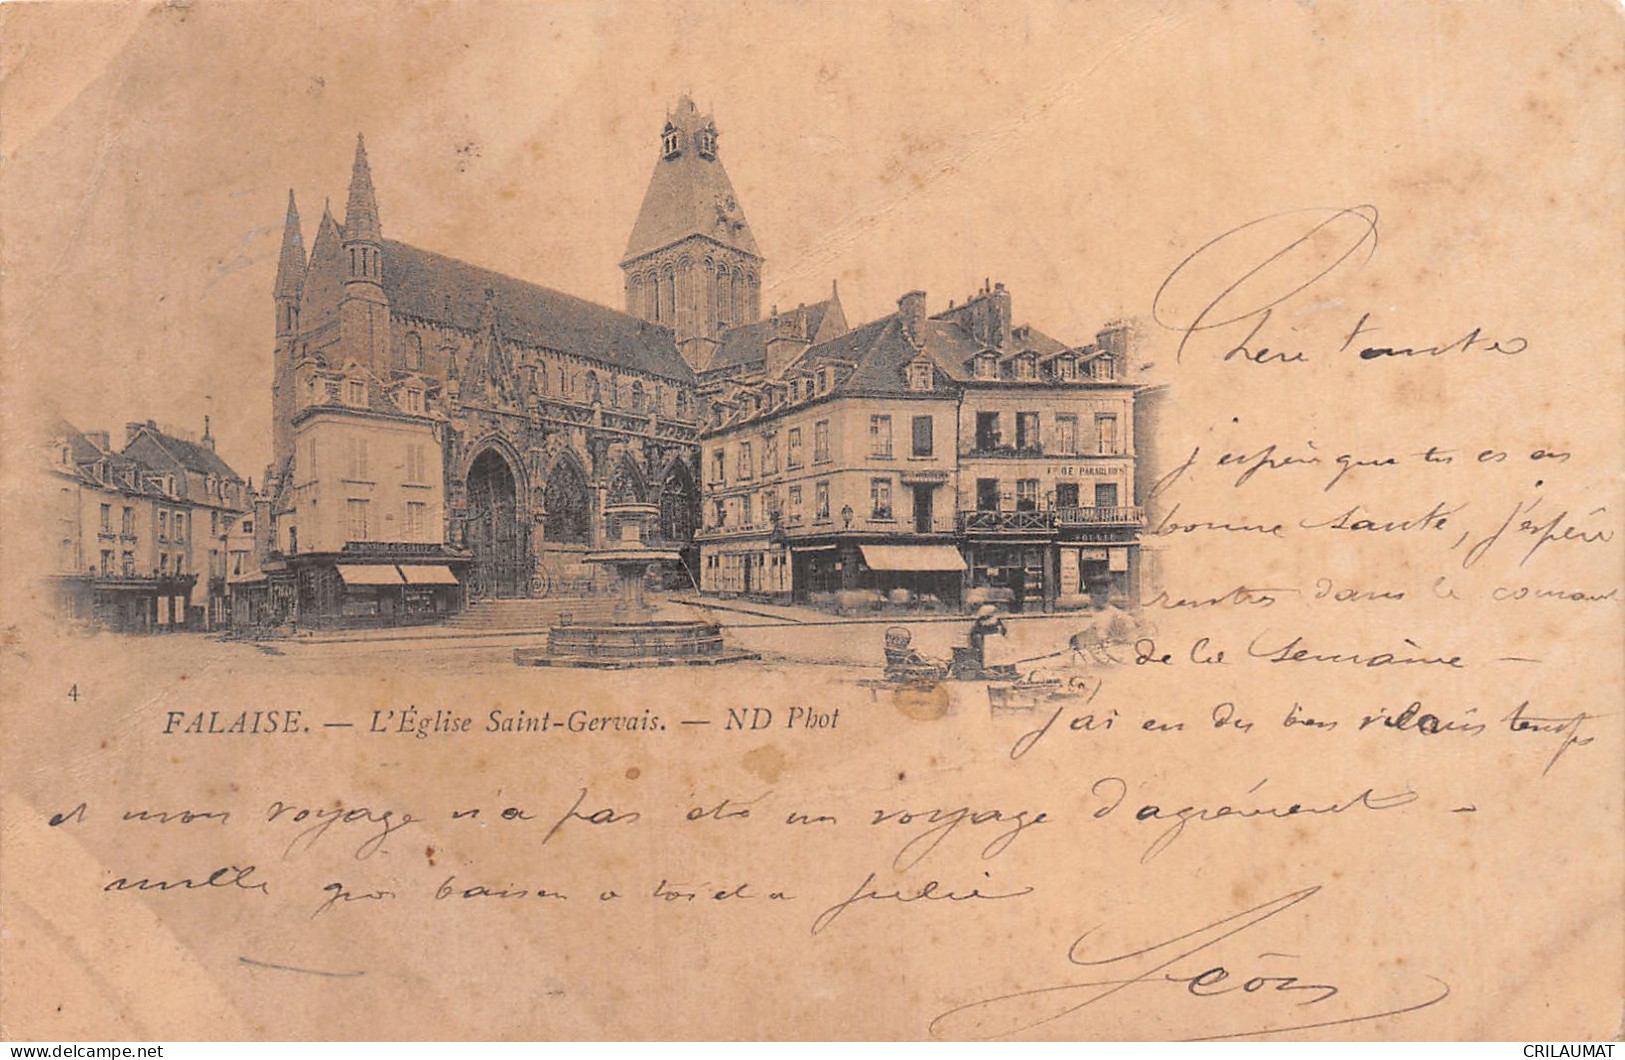 Chère tante
j'espère que tu es en
bonne santé, j'espère
rentrer dans le courant
de la semaine —
J'ai eu du bien vilain temps
et mon voyage n'a pas été un voyage d'agrément -
mille gros baisers a toi et a Julie
Léon
Fque DE PARAPLUIES
4
FALAISE. — L'Église Saint-Gervais. — ND Phot
CRILAUMAT